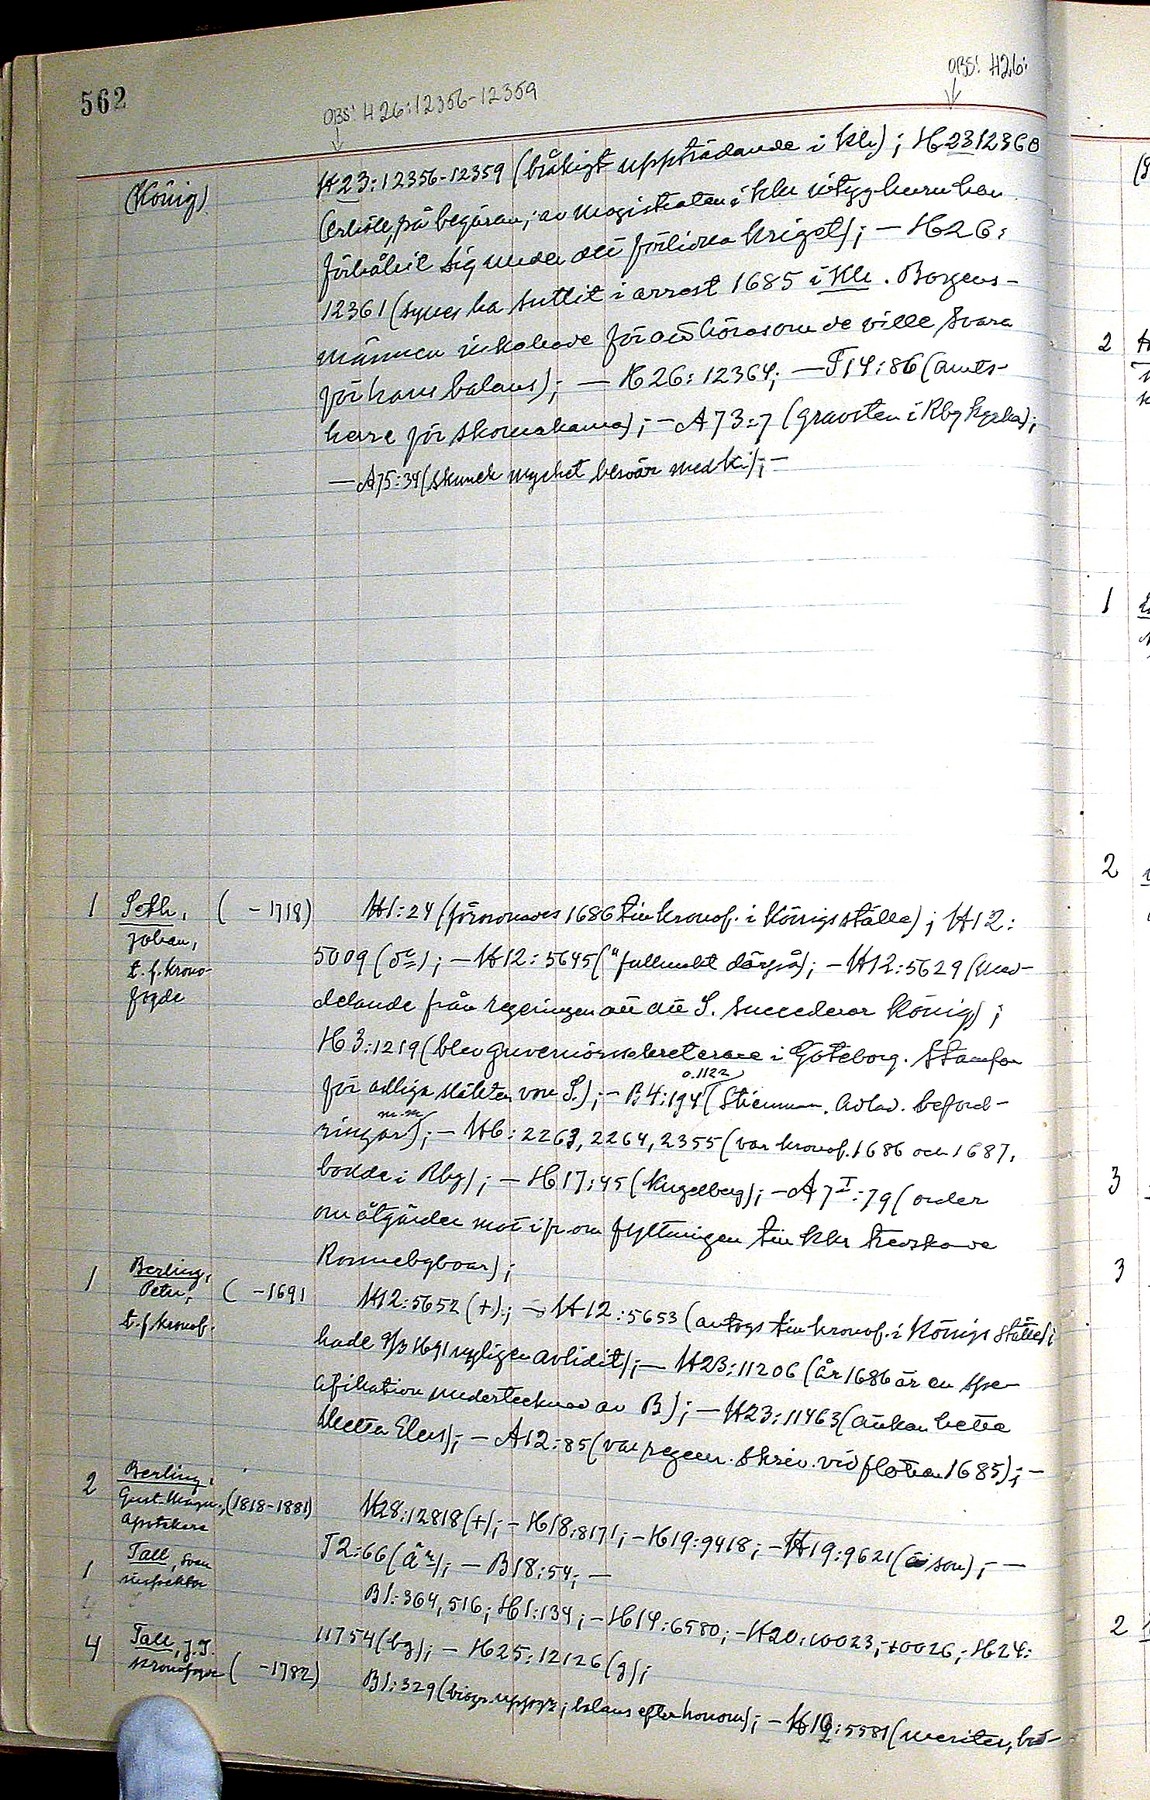 562
OBS! H26:12356-12359
OBS! H26:
(König)
H23:12356-12359 (bråkigt uppträdande i Kh); H2312360
(erhöll, på begäran, av Magistraten i Khn intyg huru han
förhållit sig under det förlidna kriget); — H26:
12361 (synes ha suttit i arrest 1685 i Kh. Borgens-
männen inkallade för att höras om de ville svara
för hans balans); — H26:12364; — F14:86 (amts-
herre för skomakarna); — A73:7 (gravsten i Rby kyrka);
— A75:34 (skunek mycket besvär med K.); —
1 Seth, ( -1718)
Johan,
t.f. krono-
fogde
H1:24 (förordnades 1686 till kronof. i Königs ställe); H12:
5009 (d:o); — H12:5645 ("fullmakt därpå); — H12:5629 (med-
delande från regeringen att S. succederar König);
H3:1219 (blev guvernörssekreterare i Göteborg. Stamfar
för adliga släkten von S.); — B4:194 (Stiernman. Adlad. beford-
o.1122
ringar m.m.); — H6:2263, 2264, 2355 (var kronof. 1686 och 1687,
bodde i Rby); — H17:45 (Kugelberg); — A7I:79 (order
om åtgärder mot ifr om flyttningen till Khr tredskande
Ronnebyboar);
1 Berling, ( -1691
Peter,
t.f. kronof.
H12:5652 (+); — H12:5653 (antogs till kronof. i Königs ställe);
hade 9/3 1691 nyligen avlidit); — H23:11206 (år 1686 är en spe-
cifikation undertecknad av B); — H23:11463 (änkan hette
Metta Elers); — A12:85 (var regem. skriv. vid flottan 1685); —
2 Berling, (1818-1881)
Gust. Magn.,
apotekare
H28:12818 (+); — H18:8171; — H19:9418; — H19:9621 (son); —
T2:66 (år); — B18:54; —
1 Tall, Sven
inspektor
B1:364, 516; H1:134; — H14:6580; — H20:10023, 10026; H24:
11754 (bg); — H25:12126 (g);
4 Tall, J.T.
kronofogde ( -1782)
B1:329 (biogr. uppgr; balans efter honom); — H12:5581 (meriter, bo-
2
1
2
3
3
2